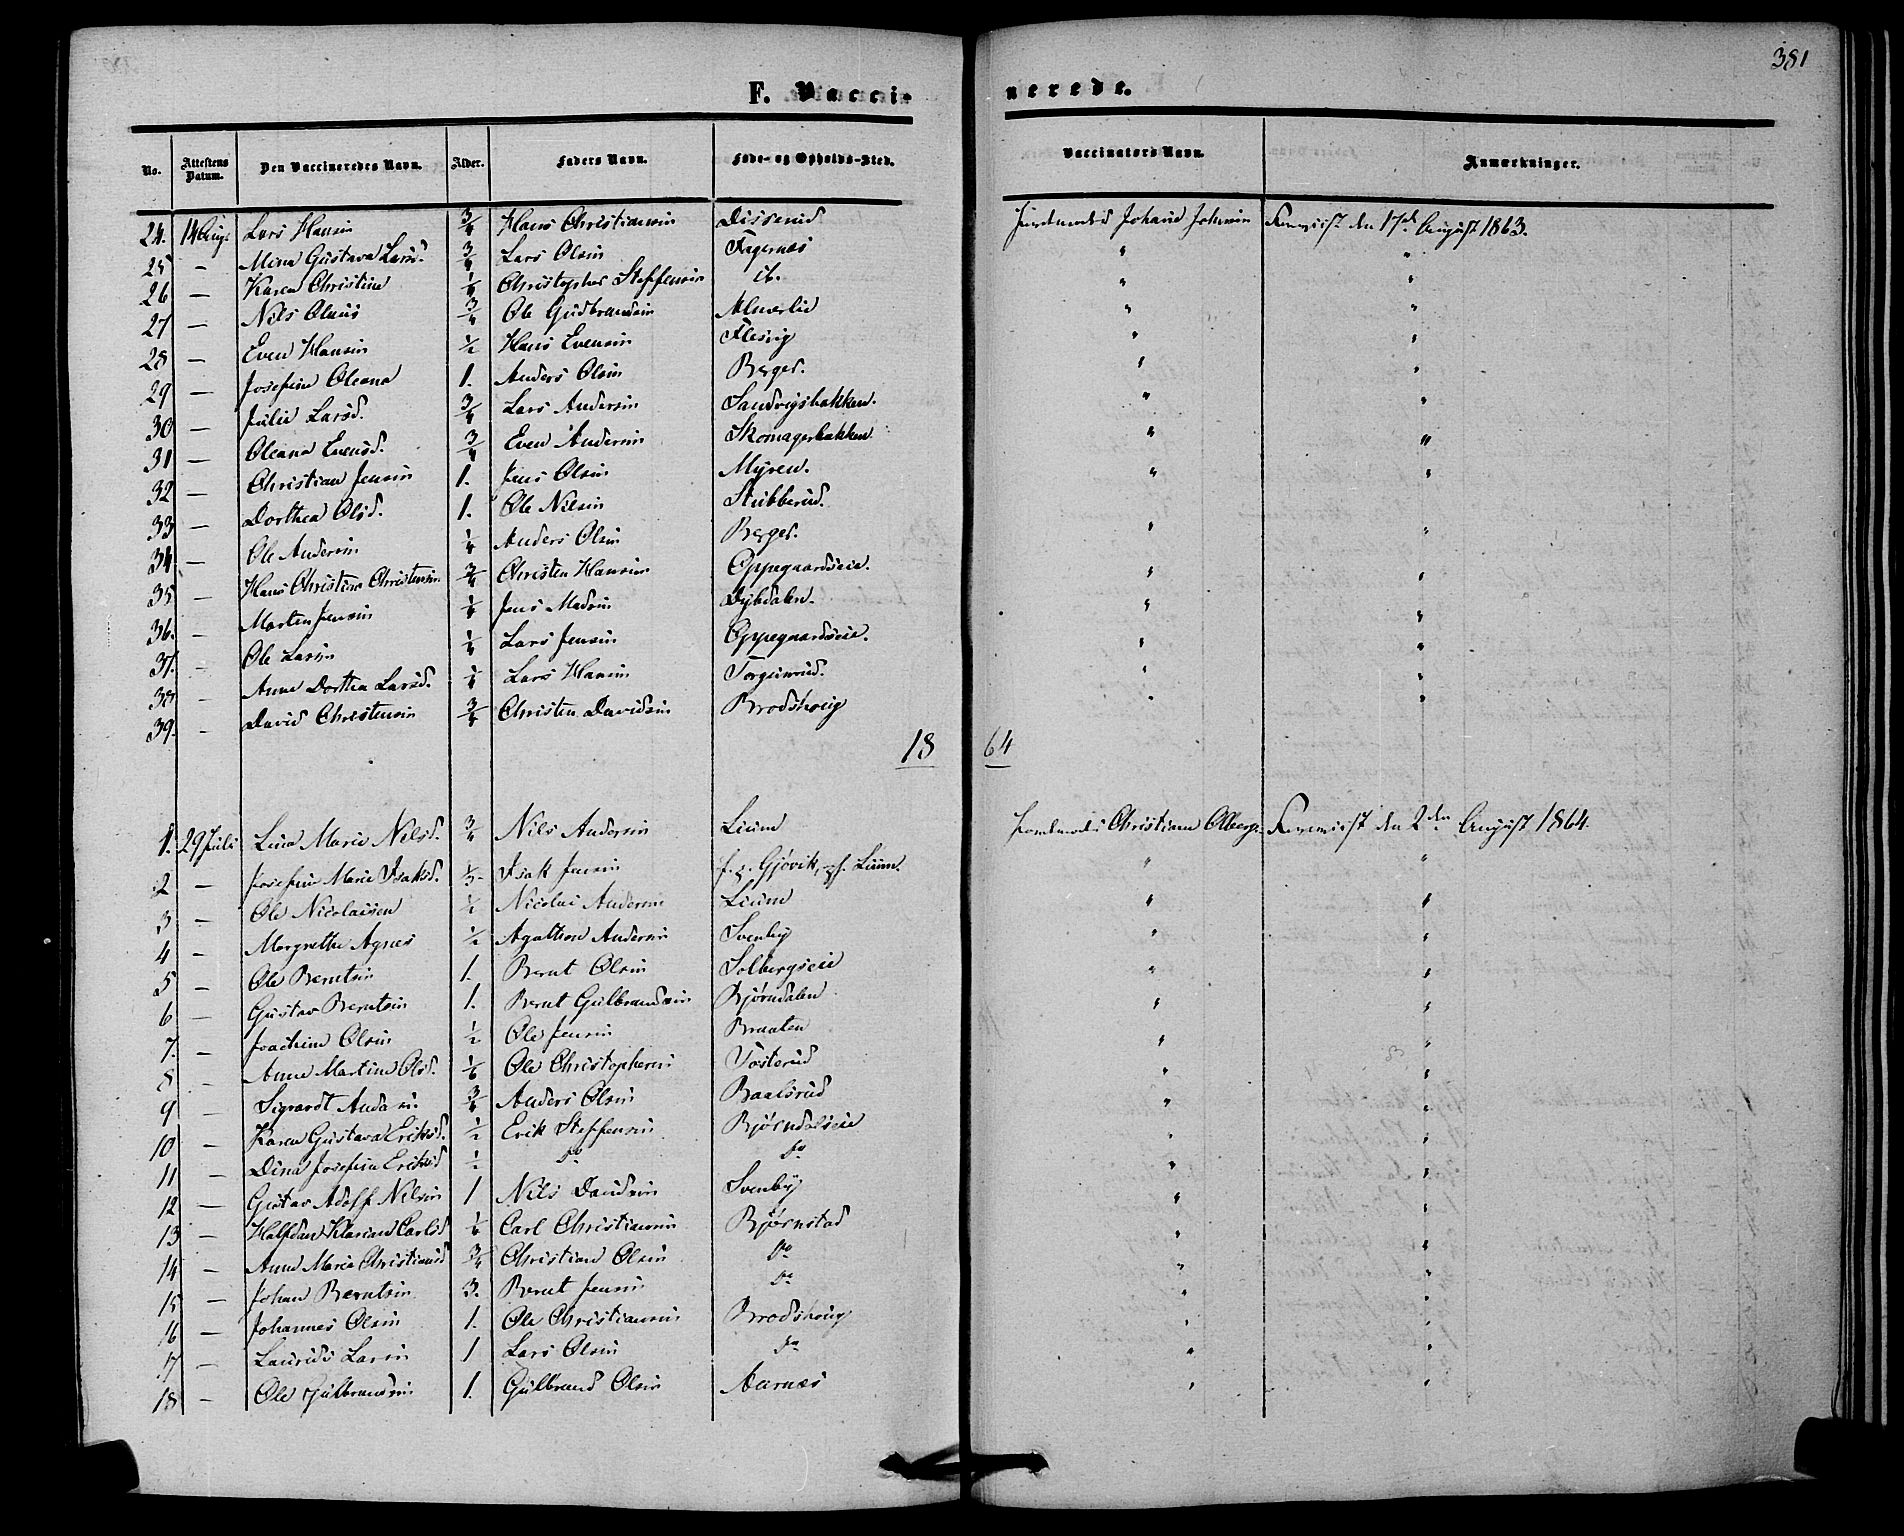 381
F. Vacci- nerede.
No. Attestens Datum. Den Vaccineredes Navn. Alder. Faders Navn. Føde- og Opholds-Sted. Vaccinatørs Navn. Anmærkninger.
24. 14 Aug. Lars Hansen 3/4 Hans Christiansen Disserud Johnsen den 17de August 1863.
25 — Mina Gustava Larsd. 3/4 Lars Olsen Fagernæs " "
26 — Karen Christine Christopher Steffensen " "
27 — Nils Olaus 3/4 Ole Gudbrandsen " "
28 — Even Hansen 1/2 Hans Evensen Flesvig " "
29 — Josefine Oleana 1. Anders Olsen Berger. " "
30 — Julie Larsd. 3/4 Lars Andersen Sandvigsbakken. " "
31 — Oleana Evensd. 3/4 Even Andersen Skomagerbakken " "
32 — Christian Jensen 1. Jens Olsen Myren. " "
33 — Dorthea Olsd. 1. Ole Nilsen Stubberud.
34 — Ole Andersen 1/4 Anders Olsen Berger. " "
35 — Hans Christian Christensen 3/4 Christen Hansen Oppegaardseie. " "
36. — Morten Jensen 1/4 Jens Madsen Dybdalen. " "
37. — Ole Larsen 1/4 Lars Jensen Oppegaardseie. " "
38 — Anne Dorthea Larsd. 1/4 Lars Hansen Torgeirsrud. " "
39. — David Christensen 3/4 Christen Davidsen Brodshoug " "
18 64
1. 29 Juli Lina Marie Nilsd. 3/4 Nils Andersen Lium Christiane den 2den August 1864.
2 — Josefine Marie Isaksd. 1/3 Isak Jensen Gjøvik, Lium. " "
3 — Ole Nicolaisen 1/2 Nicolai Andersen Lium " "
4 — Margrethe Agnes 1/2 Agathon Andersen Svenby " "
5 — Ole Berntsen 1. Bernt Olsen Solbergseie " "
6 — Gustav Berntsen 1. Bernt Gulbrandsen Bjørndalen " "
7. — Joachim Olsen 1/2 Ole Jensen Braaten " "
8 — Anne Martine Olsd. 1/6 Ole Christophersen Tosterud " "
9 — Sigvardt Andersen 3/4 Anders Olsen Baalsrud " "
10 — Karen Gustava Eriksd. 1/2 Erik Steffensen Bjørndalseie " "
11 — Dina Josefine Eriksd 1/2 do do " "
12 — Gustav Adolf Nilsen 1 Nils Davidsen Svenby " "
13 — Halfdan Klarian Carlsd 1/4 Carl Christiansen Bjørnstad " "
14 — Anne Marie Christiansd 3/4 Christian Olsen do " "
15 — Johan Berntsen 3. Bernt Jensen do " "
16 — Johannes Olsen 1. Ole Christiansen Brodshoug " "
17 — Laurids Larsen 1 Lars Olsen do " "
18 — Ole Gulbrandsen 1. Gulbrand Olsen Aarnæs " "